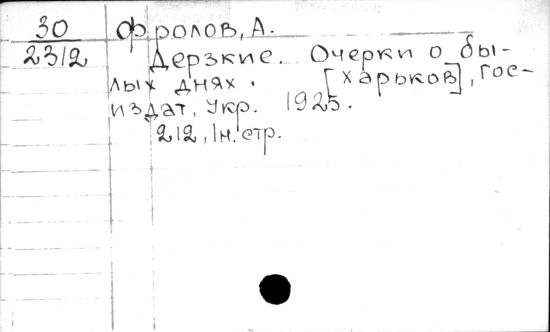 30 Фролов, А.
2312 Дерзкие. Очерки о бы-
лых днях. [Харьков], Гос-
издат, Укр. 1925.
212, 1н. стр.